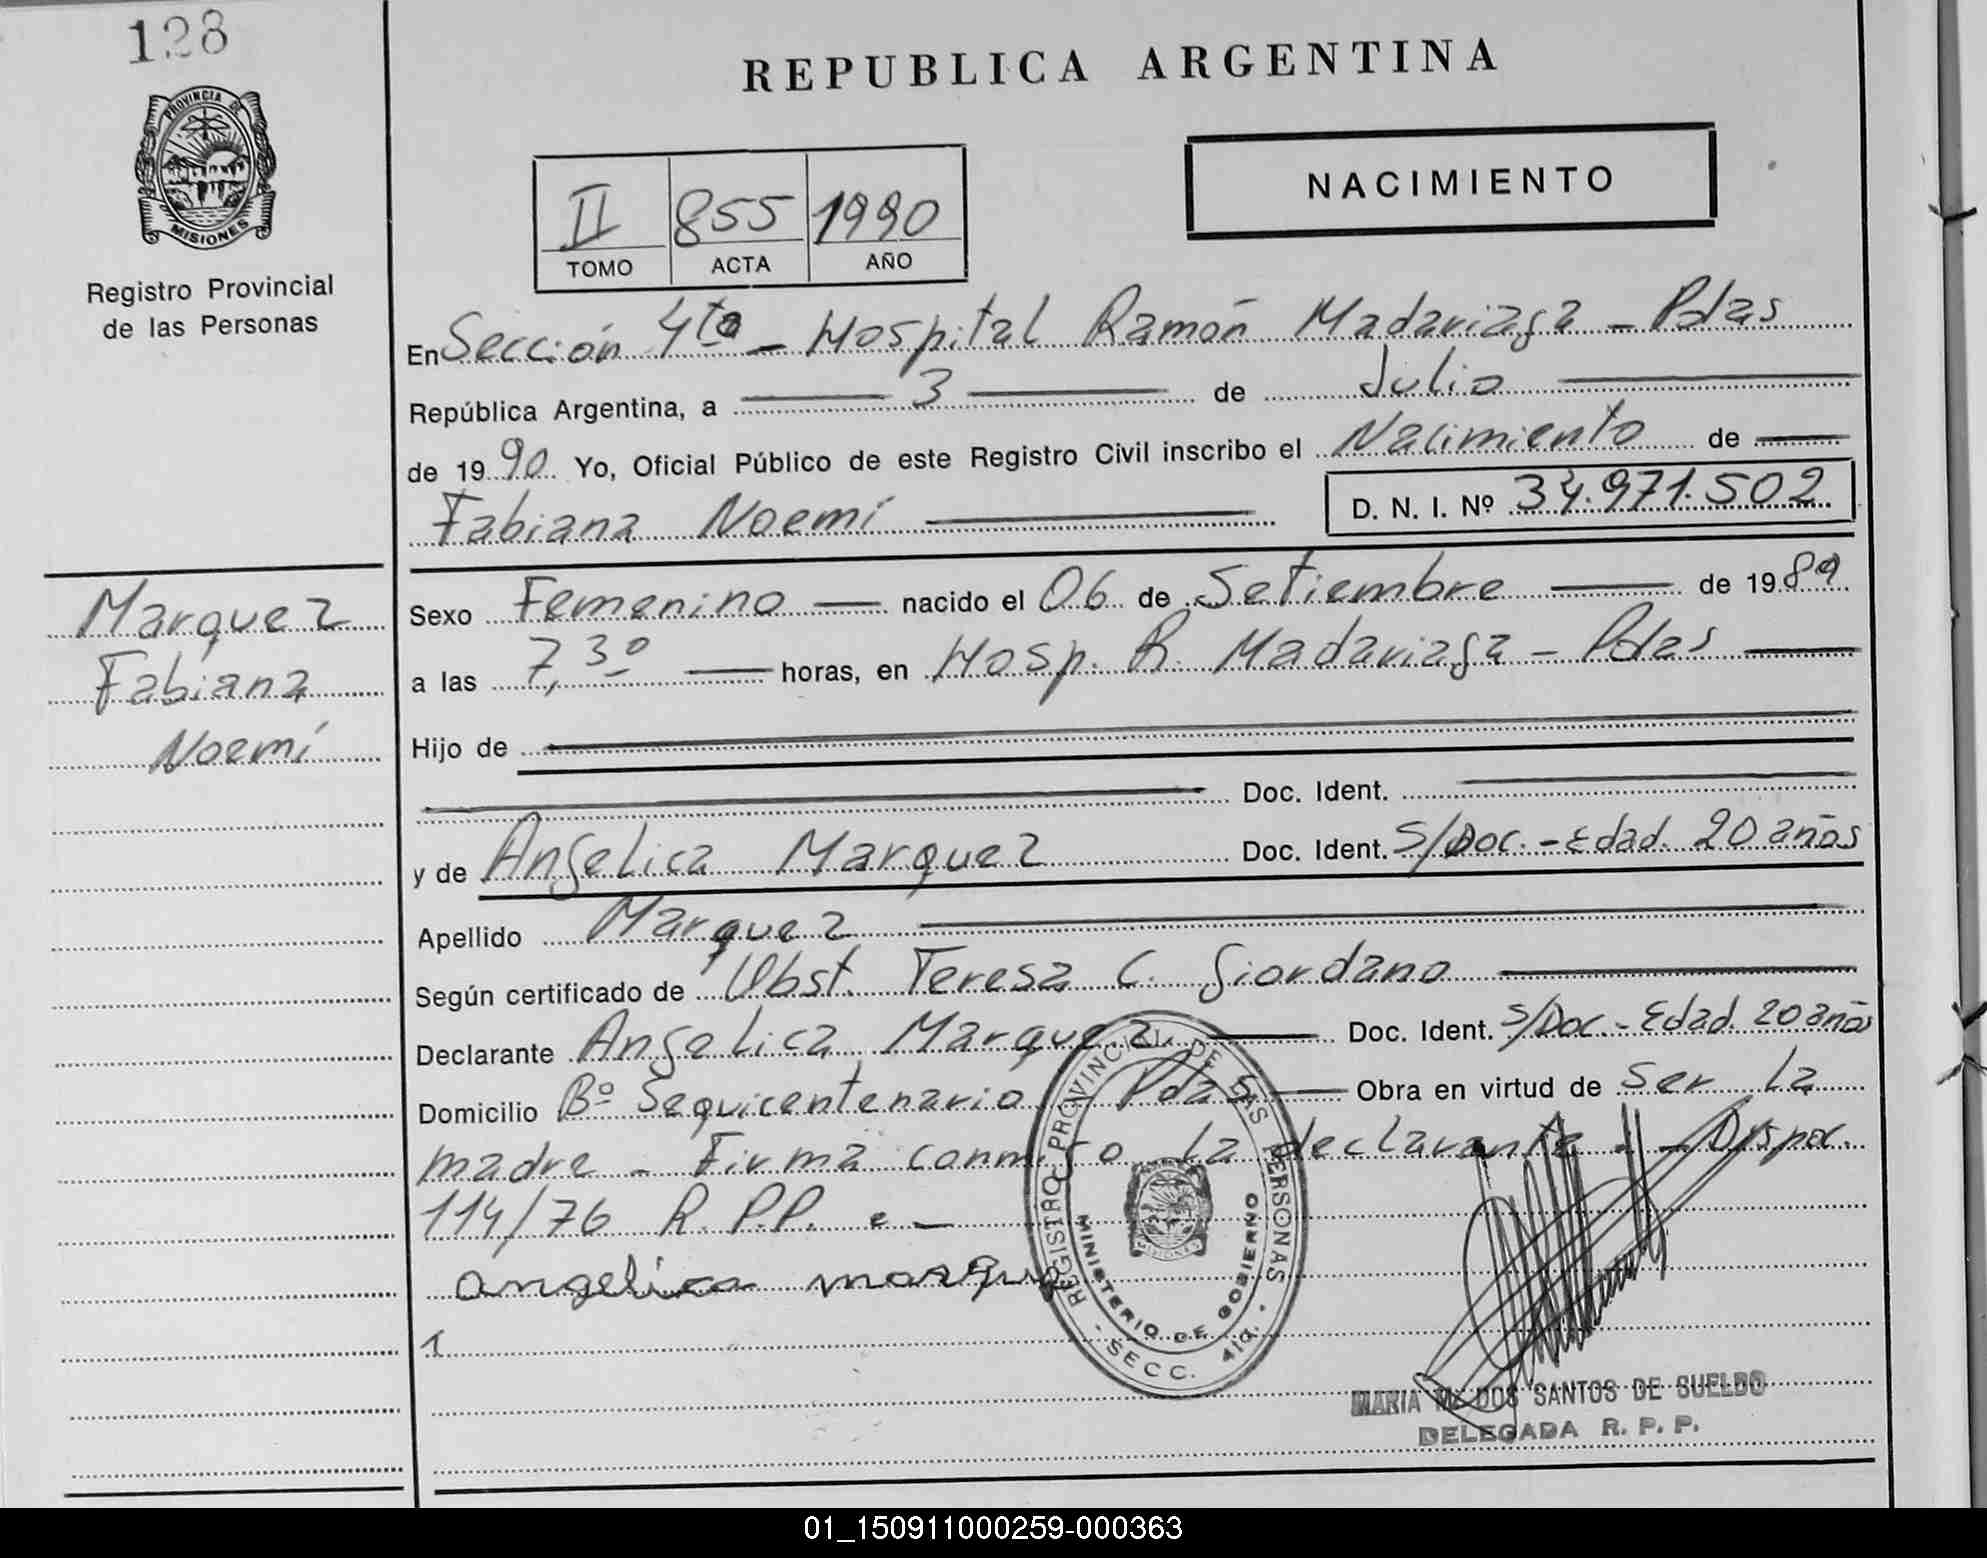 128
REPUBLICA ARGENTINA
PROVINCIA DE
MISIONES
Registro Provincial
de las Personas
NACIMIENTO
II 855 1990
TOMO ACTA AÑO
En Sección 4ta - Hospital Ramón Madariaga - Pdas
República Argentina, a 3 de Julio
de 1990 Yo, Oficial Público de este Registro Civil inscribo el Nacimiento de
Fabiana Noemí D. N. I. Nº 34.971.502
Marquez
Fabiana
Noemí
Sexo Femenino nacido el 06 de Setiembre de 1989
a las 7,30 horas, en Hosp. R. Madariaga - Pdas
Hijo de
Doc. Ident.
y de Angelica Marquez Doc. Ident. S/Doc. - Edad. 20 años
Apellido Marquez
Según certificado de Obst. Teresa C. Giordano
Declarante Angelica Marquez Doc. Ident. S/Doc. - Edad. 20 años
Domicilio Bº Sequicentenario Pdas Obra en virtud de Ser La
madre - Firma conmigo La declarante. - Dispos.
114/76 R. P.P. . -
angelica marque
REGISTRO PROVINCIAL DE LAS PERSONAS
MINISTERIO DE GOBIERNO
- SECC. 4ta. -
MARIA M. DOS SANTOS DE SUELDO
DELEGADA R. P. P.
01_150911000259-000363